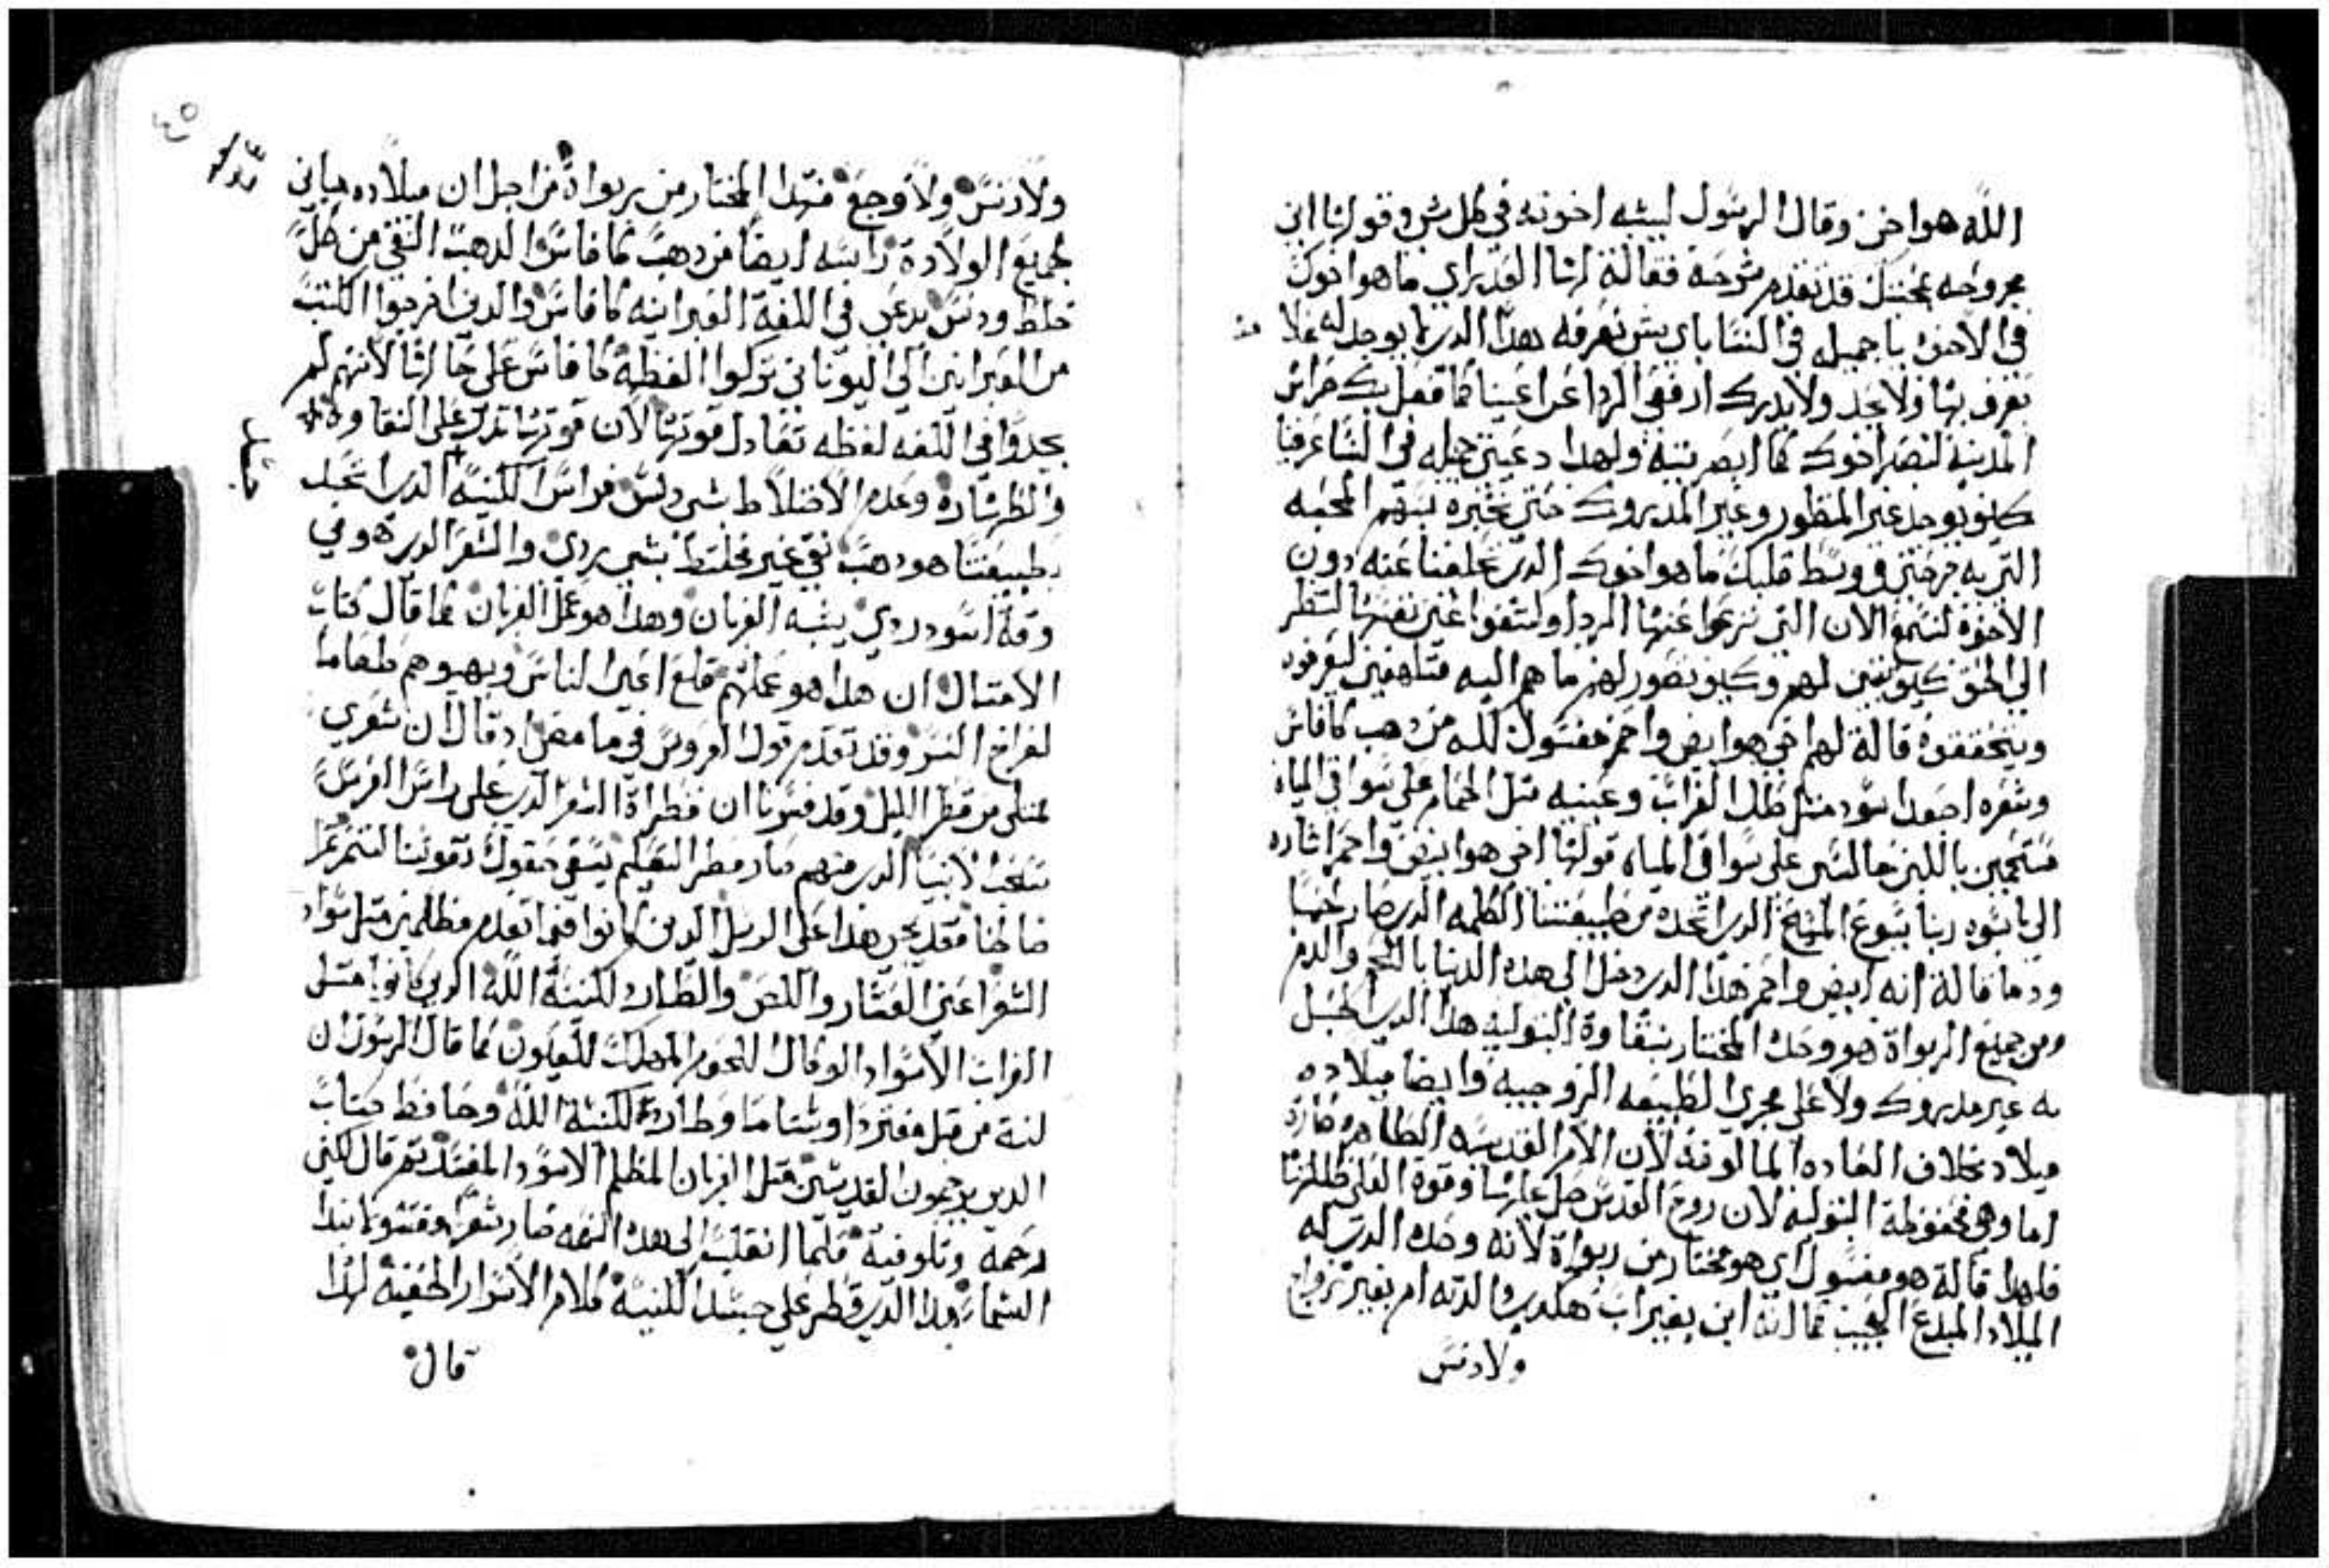 الله هو اخي وقال الرسول ليشبه اخوته في كل شي وقولها اني
مجروحه بمحبتك قد تقدم شرحه فقالة لها العداري ما هو اخوك
في الاخوه يا جميله في النسا باي شي نعرفه هدا الدي ما يوجد له
نعرف بها ولا يحد ولا يدرك ارفعي الردا عن اعيننا كما فعل بك حراس
المدينه لنصر اخوك كما ابصرتيه ولهدا دعيتي جميله في النسا عرفينا
كيف يوجد غير المنظور وغير المدروك حتي نخبره بسهم المحبه
التي به جرحتي في وسط قلبك ما هو اخوك الدي تحلفينا عنه دون
الاخوه لنسمع الان التي نزعوا عنها الردا ولتفوا عين نفسها لتنظر
الي الحق كيف تفسر لهم وكيف تصور لهم ما هم اليه متلهفين ليعرفوه
ويتحققوه قالة لهم اخي هو ابيض واحمر مغسول كله من دهب كافاس
وشعره اجعد اسود مثل ظل الغراب وعينيه مثل الحمام علي سواقي المياه
مستحمين باللبن جالسين علي سواقي المياه قولها اخي هو ابيض واحمر اشاره
الي ناسوت ربنا يسوع المسيح الدي اتحده من طبيعتنا الكلمه الدي صار لحميا
ودما قالة انه ابيض واحمر هدا الدي دخل الي هده الدنيا باللحم والدم
ومن جميع الربواة هو وحده المختار بنقاوة البتوليه هدا الدي الحبل
به غير مدروك ولا علي مجري الطبيعه الزوجيه وايضا ميلاده
ميلاد بخلاف العاده المالوفه لان الام القديسه الطاهره صارة
اما وهي محفوظة البتوليه لان روح القدس حل عليها وقوة العلي ظللتها
فلهدا قالة هو مغسول اي هو مختار من ربواة لانه وحده الدي له
الميلاد المبدع العجيب كما انه ابن بغير اب هكدي والدته ام بغير زواج
ولا دنس
ولا دنس ولا وجع فبهدا المختار من ربواة من اجل ان ميلاده مباين
لجميع الولادة راسه ايضا من دهب كافاس الدهب النقي من كل
خلط ودنس يدعي في اللغه العبرانيه كافاس والدين اخرجوا الكتب
من العبراني الي اليوناني تركوا اللفظه كافاس علي حالها لانهم لم
يجدوا في اللغه لفظه تعادل قوتها لان قوتها تدل علي النقاوه
والطهاره وعدم الاختلاط بشي دنس فراس الكنيسه الدي اتحد
بطبيعتنا هو دهب نقي غير مختلط بشي ردي والشعر الدي هو في
وقة اسود ردي يشبه الغربان وهدا هو عمل الغربان كما قال كتاب
الامتال ان هدا هو عملهم قلع اعين الناس ويهبوهم طعاما
لفراخ النسر وقد تقدم قول العروس في ما مضا اد قال ان شعري
امتلي من قطر الليل وقد فسرنا ان قطراة الشعر الدي علي راس العروس
سحب الانبيا الدي منهم صار مطر التعليم يسقي حقول نفوسنا لتتمر تمر
صالحا فقد نجي هدا علي الرسل الدين كانوا فيما تقدم مظلمين متل سواد
الشعر اعني العشار واللص والطارد لكنيسة الله الدي كانوا متل
الغراب الاسواد الوكال اللحوم المهلك للعيون كما قال الرسول ان
كنة من قبل مفتردا وشتاما وطاردة لكنيسة الله وحافظ كتاب
الدين يرجمون القديسين متل الغربان المظلم الاسود المفسد تم قال لكني
رحمة وتلوفية فلما انقلب الي هده النعمه صار شعرا مغسولا بندا
السما وبدا الدي قطر علي جسد الكنيسة كلام الاسرار الخفيه لهدا
قال